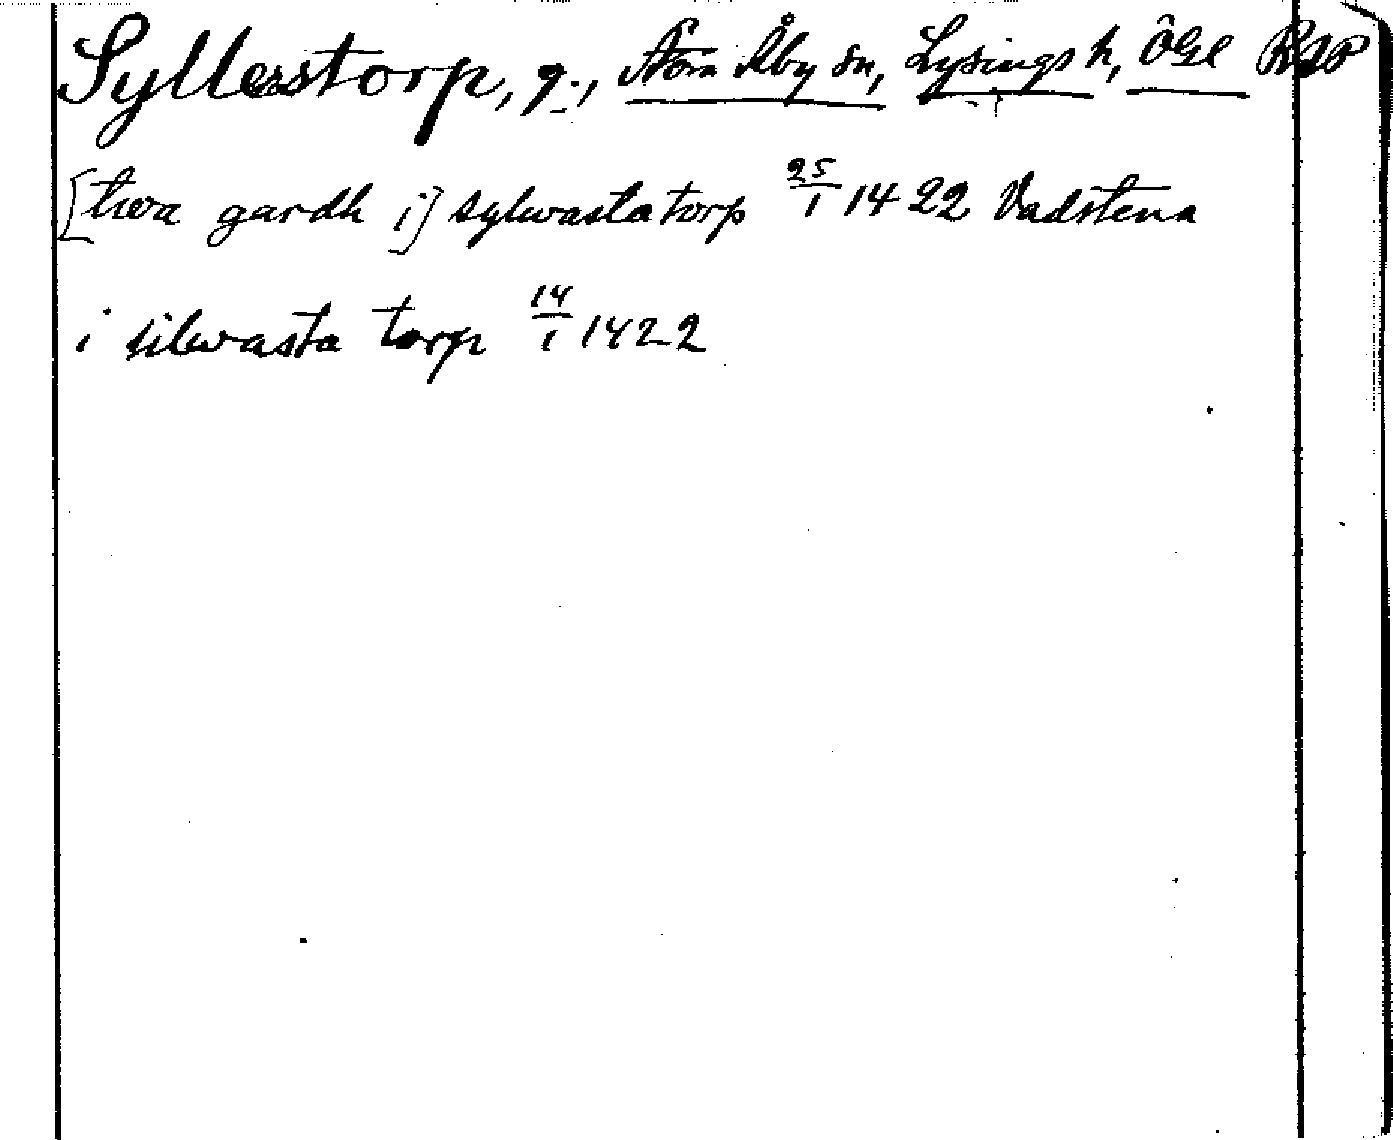 Syllerstorp, g., Norra Åby sn, Lysings h, ÖGl RAP
[twa gardh i] sylwastatorp 25/1 1422 Vadstena
i silwasta torp 14/1 1422